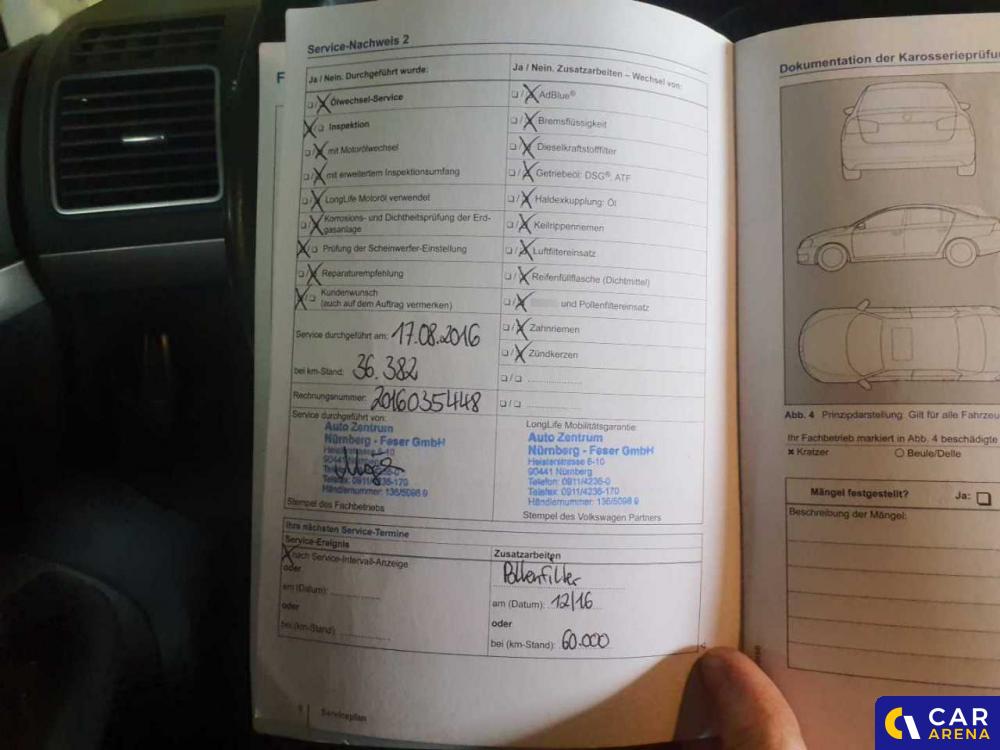 Service-Nachweis 2
Ja / Nein. Durchgeführt wurde:
Ölwechsel-Service
Inspektion
mit Motorölwechsel
mit erweitertem Inspektionsumfang
LongLife Motoröl verwendet
Korrosions- und Dichtheitsprüfung der Erd-
gasanlage
Prüfung der Scheinwerfer-Einstellung
Reparaturempfehlung
Kundenwunsch
(auch auf dem Auftrag vermerken)
Service durchgeführt am: 17.08.2016
bei km-Stand: 36.382
Rechnungsnummer: 2016035448
Service durchgeführt von:
Auto Zentrum
Nürnberg - Feser GmbH
90441
Telefax: 0911/4236-170
Händlernummer: 136/5098 9
Stempel des Fachbetriebs
Ja / Nein. Zusatzarbeiten – Wechsel von:
AdBlue®
Bremsflüssigkeit
Dieselkraftstofffilter
Getriebeöl: DSG®, ATF
Haldexkupplung: Öl
Keilrippenriemen
Luftfiltereinsatz
Reifenfüllflasche (Dichtmittel)
und Pollenfiltereinsatz
Zahnriemen
Zündkerzen
LongLife Mobilitätsgarantie:
Auto Zentrum
Nürnberg - Feser GmbH
Heisterstrasse 6-10
90441 Nürnberg
Telefon: 0911/4236-0
Telefax: 0911/4236-170
Händlernummer: 136/5098 9
Stempel des Volkswagen Partners
Ihre nächsten Service-Termine
Service-Ereignis
nach Service-Intervall-Anzeige
oder
am (Datum):
oder
bei (km-Stand)
Zusatzarbeiten
Pollenfilter
am (Datum): 12/16
oder
bei (km-Stand): 60.000
Serviceplan
Dokumentation der Karosserieprüfu
Abb. 4 Prinzipdarstellung: Gilt für alle Fahrzeu
Ihr Fachbetrieb markiert in Abb. 4 beschädigte
× Kratzer
Beule/Delle
Mängel festgestellt?
Ja:
Beschreibung der Mängel:
CAR
ARENA